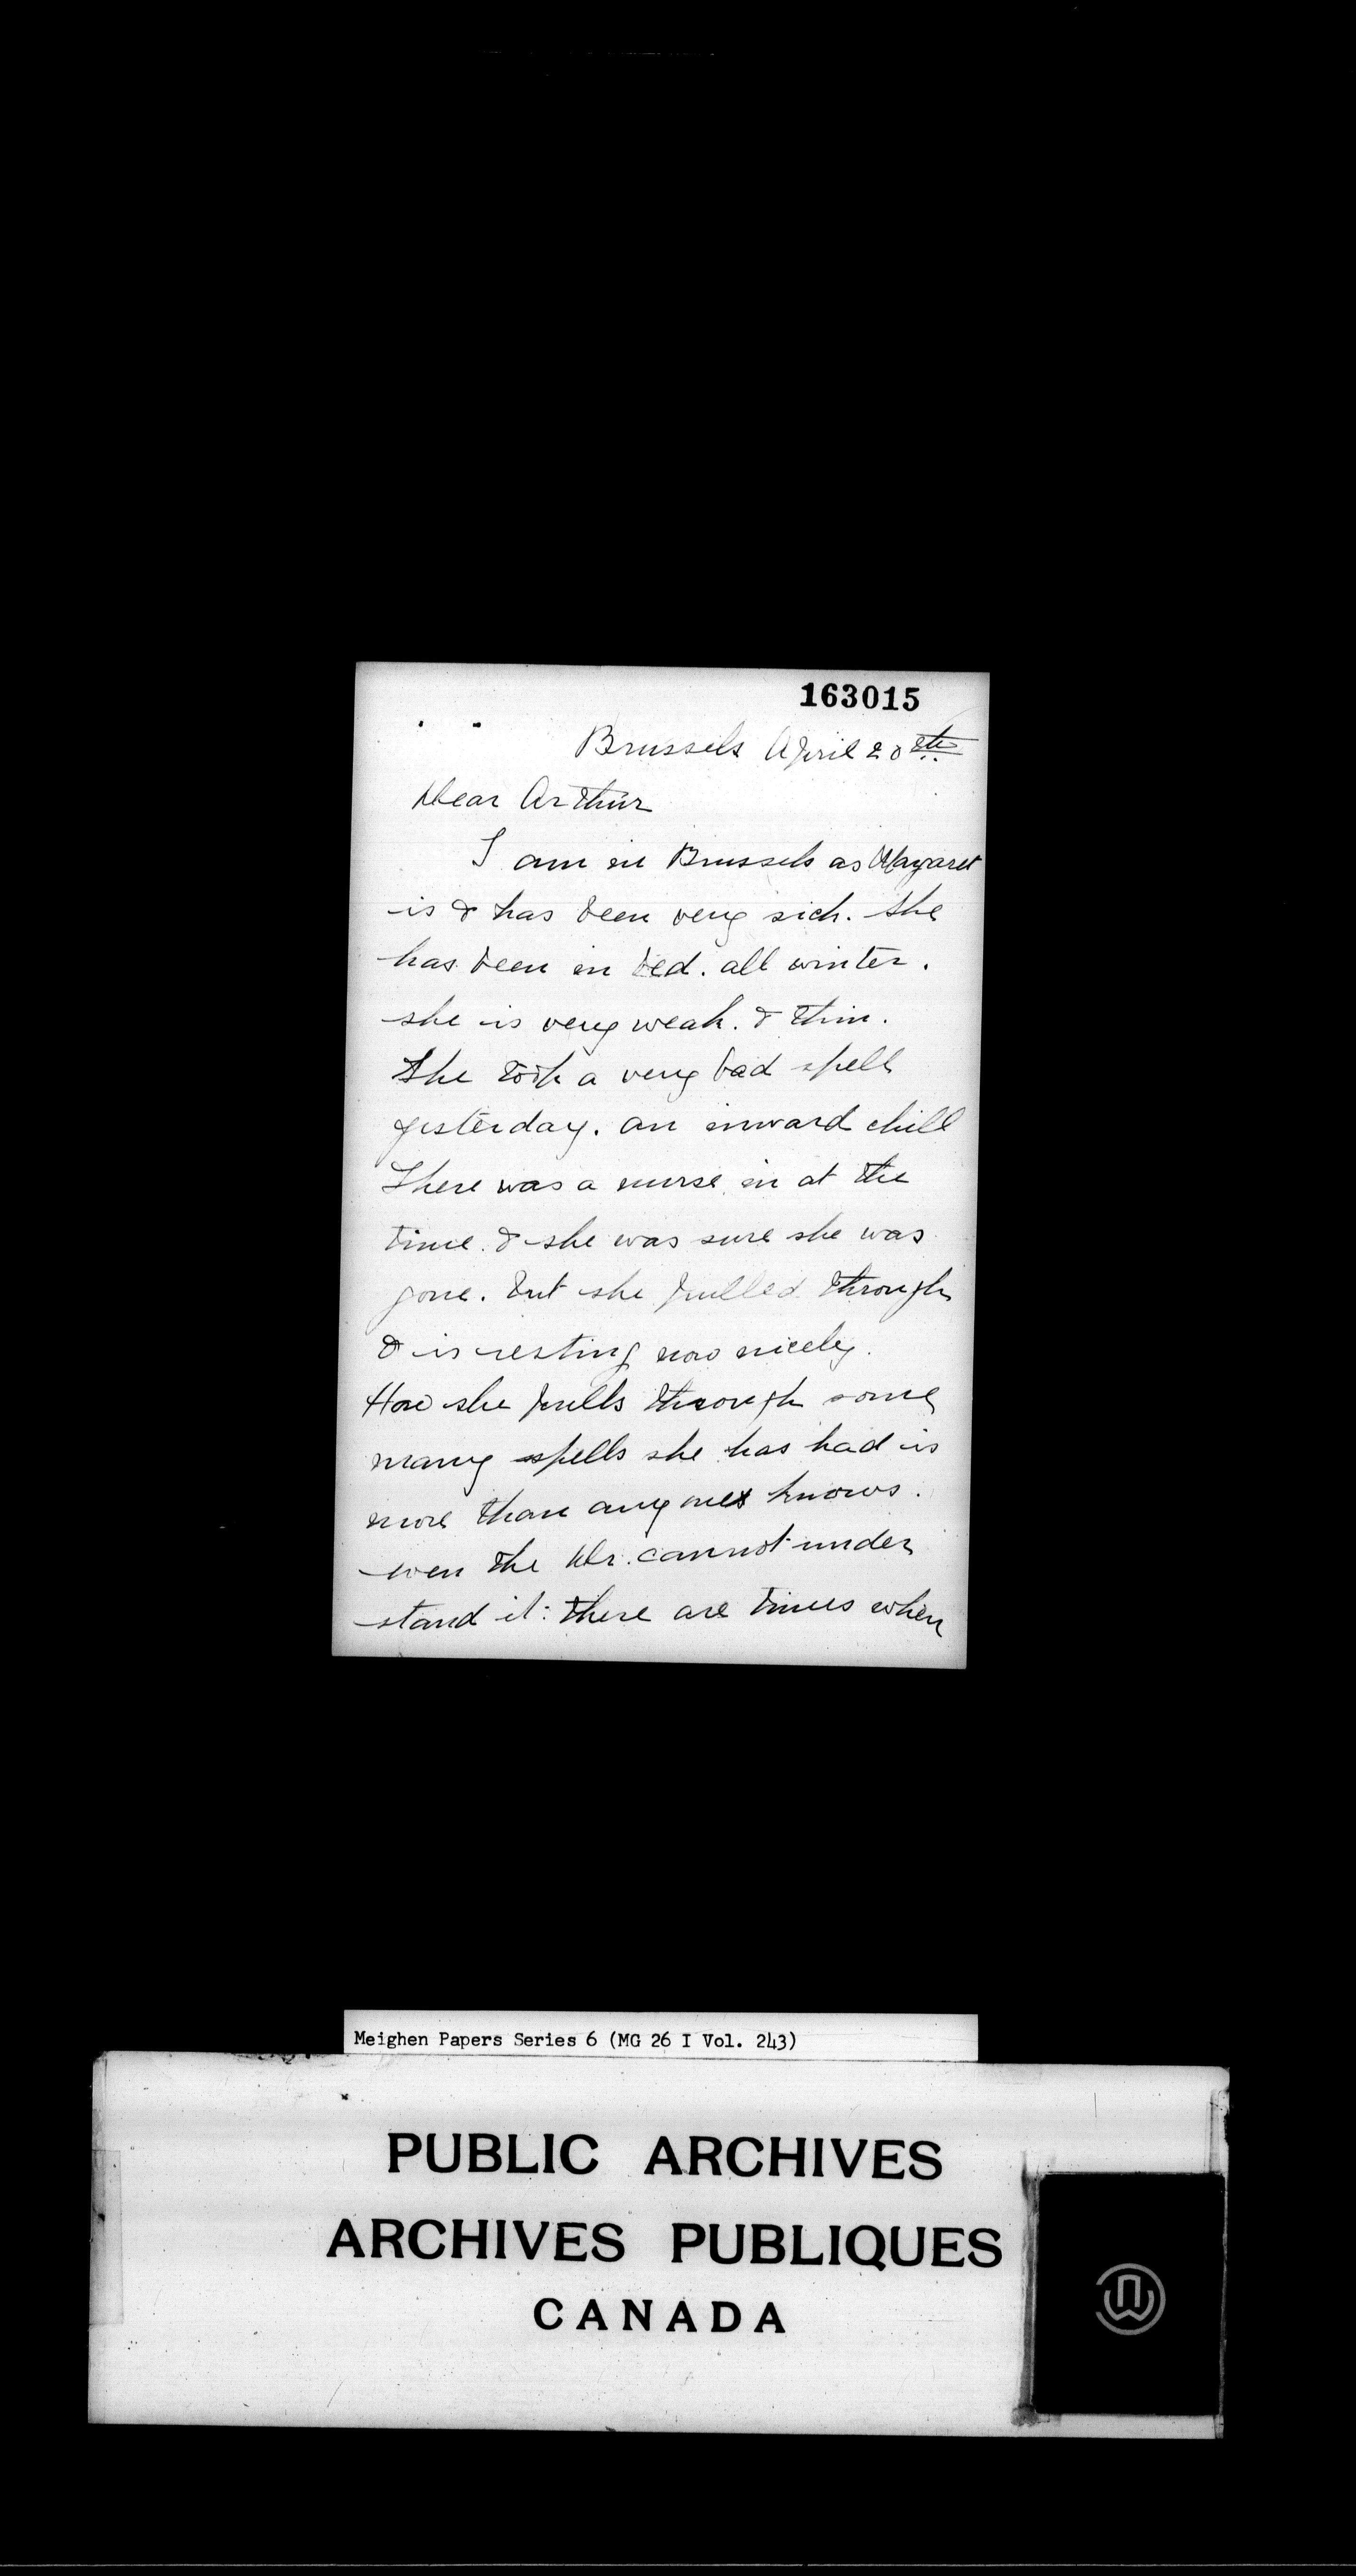 163015
Brussels April 20th
Dear Arthur
I am in Brussels as Margaret
is & has been very sick. She
has been in bed. all winter.
she is very weak. & thin.
She took a very bad spell
yesterday. an inward chill
There was a nurse in at the
time. & she was sure she was
gone. but she pulled through
& is resting now nicely.
How she pulls through some
many spells she has had is
more than any one knows.
even the Dr. cannot under
stand it: there are times when
Meighen Papers Series 6 (MG 26 I Vol. 243)
PUBLIC ARCHIVES
ARCHIVES PUBLIQUES
CANADA